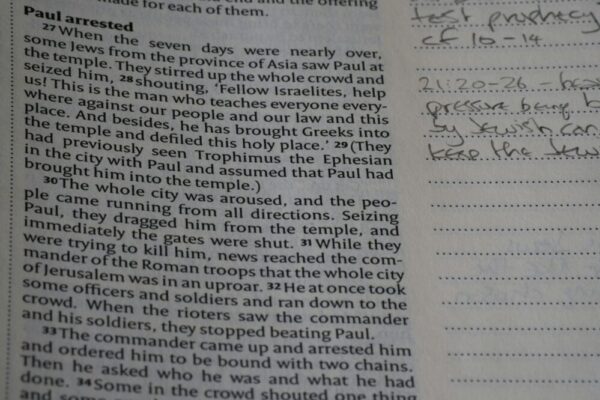 made for each of them.
Paul arrested
27 When the seven days were nearly over,
some Jews from the province of Asia saw Paul at
the temple. They stirred up the whole crowd and
seized him, 28 shouting, ‘Fellow Israelites, help
us! This is the man who teaches everyone every-
where against our people and our law and this
place. And besides, he has brought Greeks into
the temple and defiled this holy place.’ 29 (They
had previously seen Trophimus the Ephesian
in the city with Paul and assumed that Paul had
brought him into the temple.)
30 The whole city was aroused, and the peo-
ple came running from all directions. Seizing
Paul, they dragged him from the temple, and
immediately the gates were shut. 31 While they
were trying to kill him, news reached the com-
mander of the Roman troops that the whole city
of Jerusalem was in an uproar. 32 He at once took
some officers and soldiers and ran down to the
crowd. When the rioters saw the commander
and his soldiers, they stopped beating Paul.
33 The commander came up and arrested him
and ordered him to be bound with two chains.
Then he asked who he was and what he had
done. 34 Some in the crowd shouted one thing
and some
prophecy
cf 10-14
21:20-26 -
pressure being
by Jewish
keep the Jew